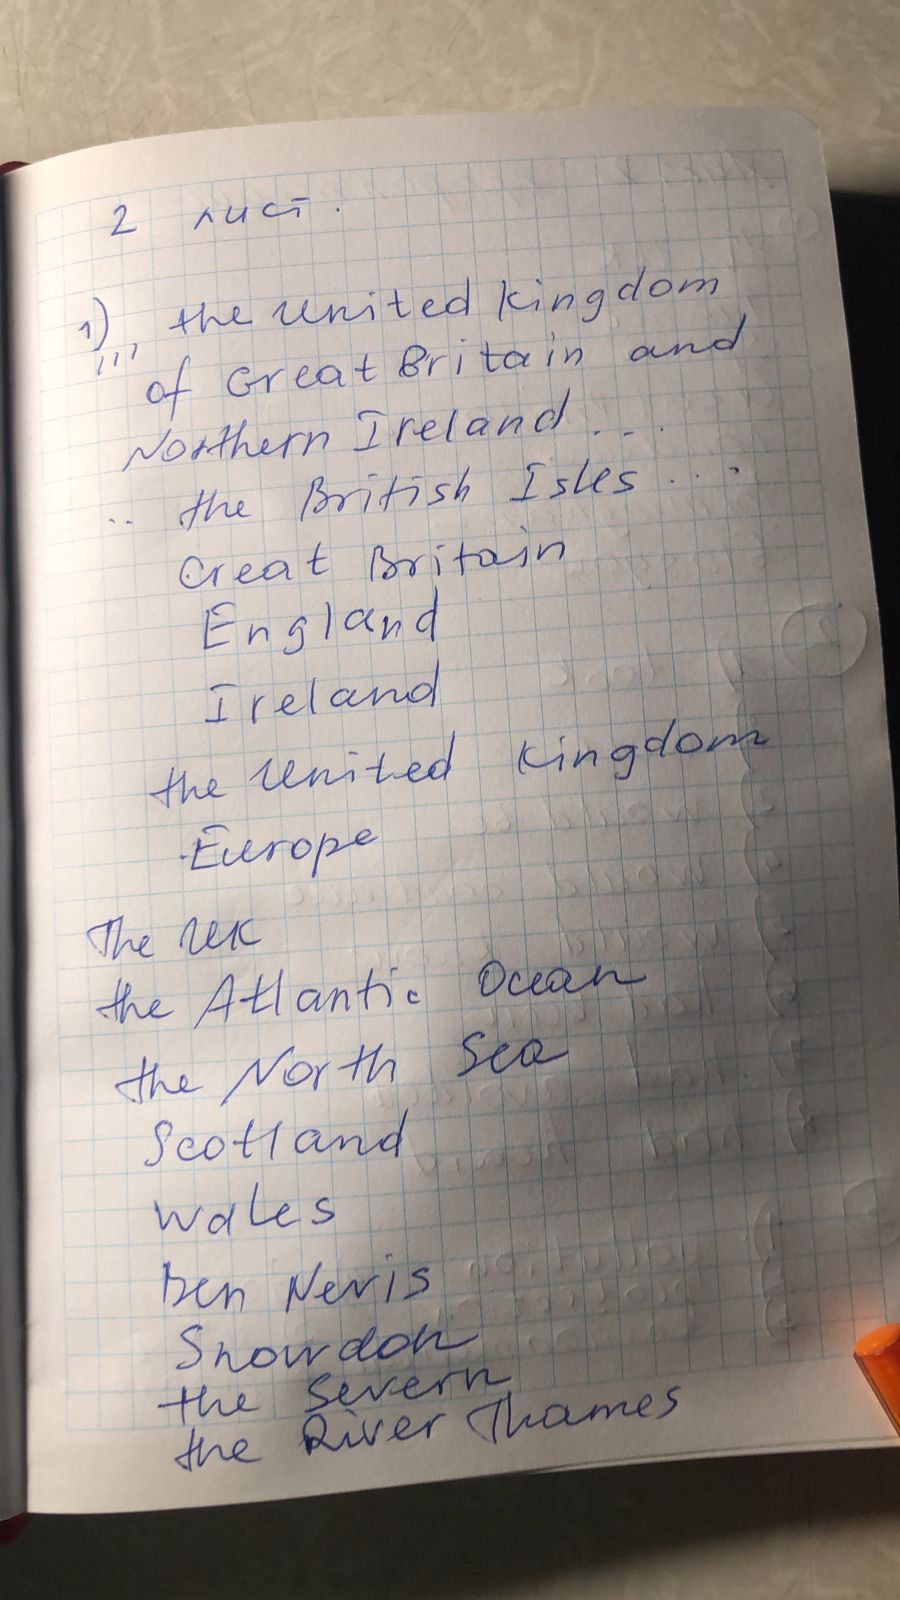 2 лист.
1) ,,, the United Kingdom
of Great Britain and
Northern Ireland ...
.. the British Isles ...
Great Britain
England
Ireland
the United Kingdom
Europe
The UK
the Atlantic Ocean
the North Sea
Scotland
Wales
Ben Nevis
Snowdon
the Severn
the River Thames